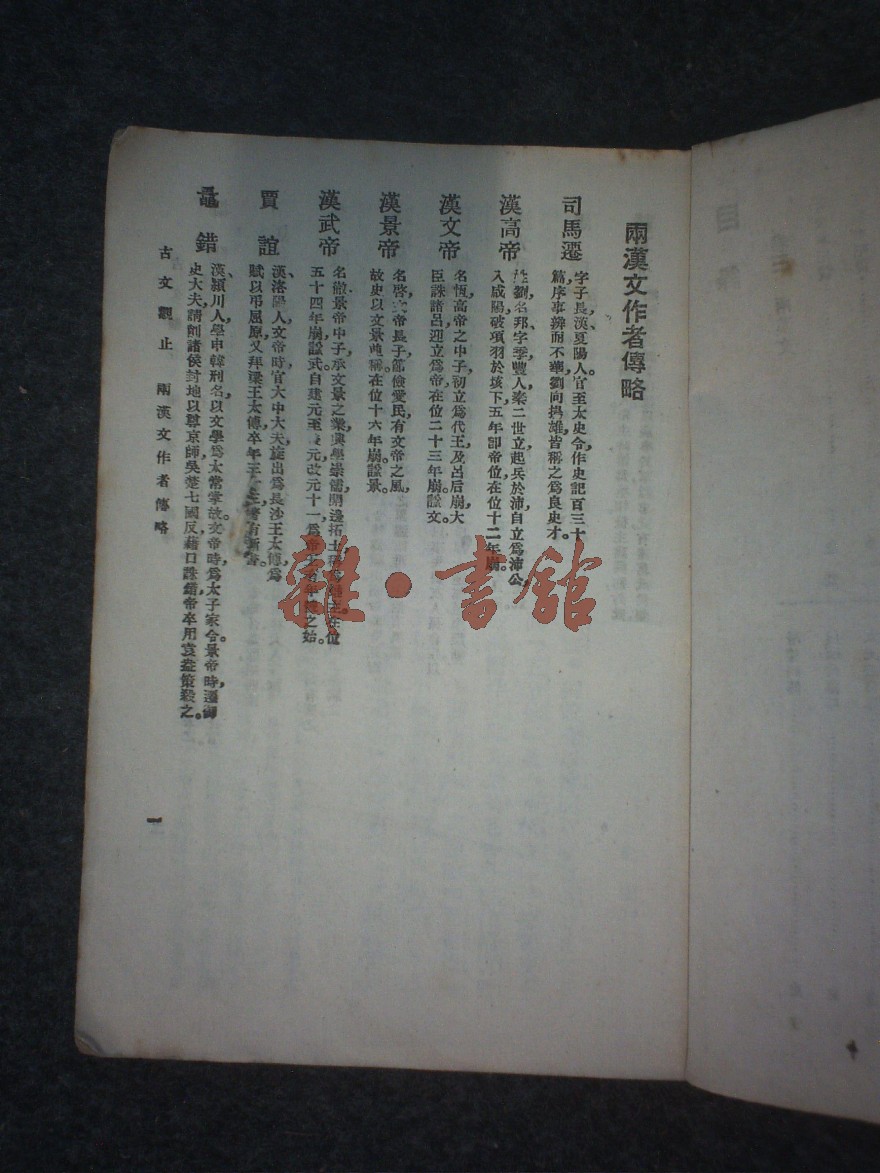 兩漢文作者傳略
司馬遷
字子長，漢夏陽人。官至太史令，作史記百三十
篇，序事辨而不華，劉向揚雄皆稱之爲良史才。
漢高帝
姓劉，名邦，字季，豐人。秦二世立，起兵於沛，自立爲沛公，
入咸陽，破項羽於垓下，五年卽帝位，在位十二年崩。
漢文帝
名恆，高帝之中子，初立爲代王，及呂后崩，大
臣誅諸呂，迎立爲帝，在位二十三年崩，諡文。
漢景帝
名啓，文帝長子，節儉愛民，有文帝之風，
故史以文景並稱。在位十六年崩，諡景。
漢武帝
名徹，景帝中子，承文景之業，興學崇儒，開邊拓土，在位
五十四年崩，諡武。自建元至後元，改元十一，爲帝之始。
賈誼
漢洛陽人，文帝時，官大中大夫，旋出爲長沙王太傅，爲
賦以弔屈原，又拜梁王太傅，卒年三十三，著有新書。
鼂錯
漢潁川人，學申韓刑名，以文學爲太常掌故。文帝時，爲太子家令。景帝時，遷御
史大夫，請削諸侯封地，以尊京師，吳楚七國反，藉口誅錯，帝卒用袁盎策殺之。
古文觀止　兩漢文作者傳略
一
目
雜·書館